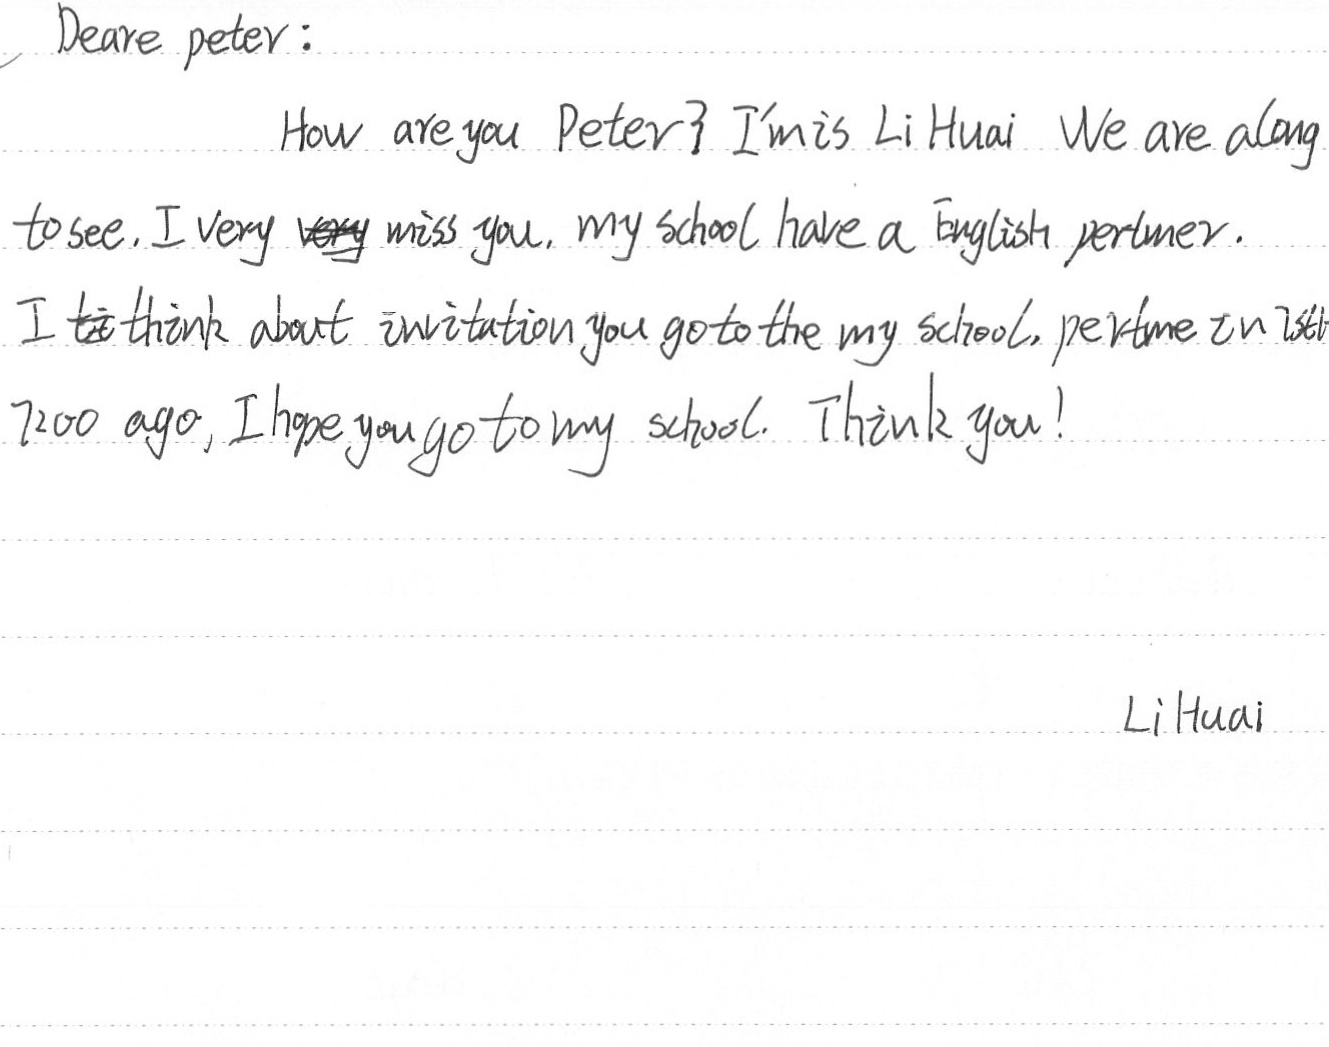 Deare peter:
How are you Peter? I'm is Li Huai We are along
to see. I very miss you. my school have a English pertmer.
I think about invitation you go to the my school. pertme in
7200 ago, I hope you go to my school. Think you!
Li Huai